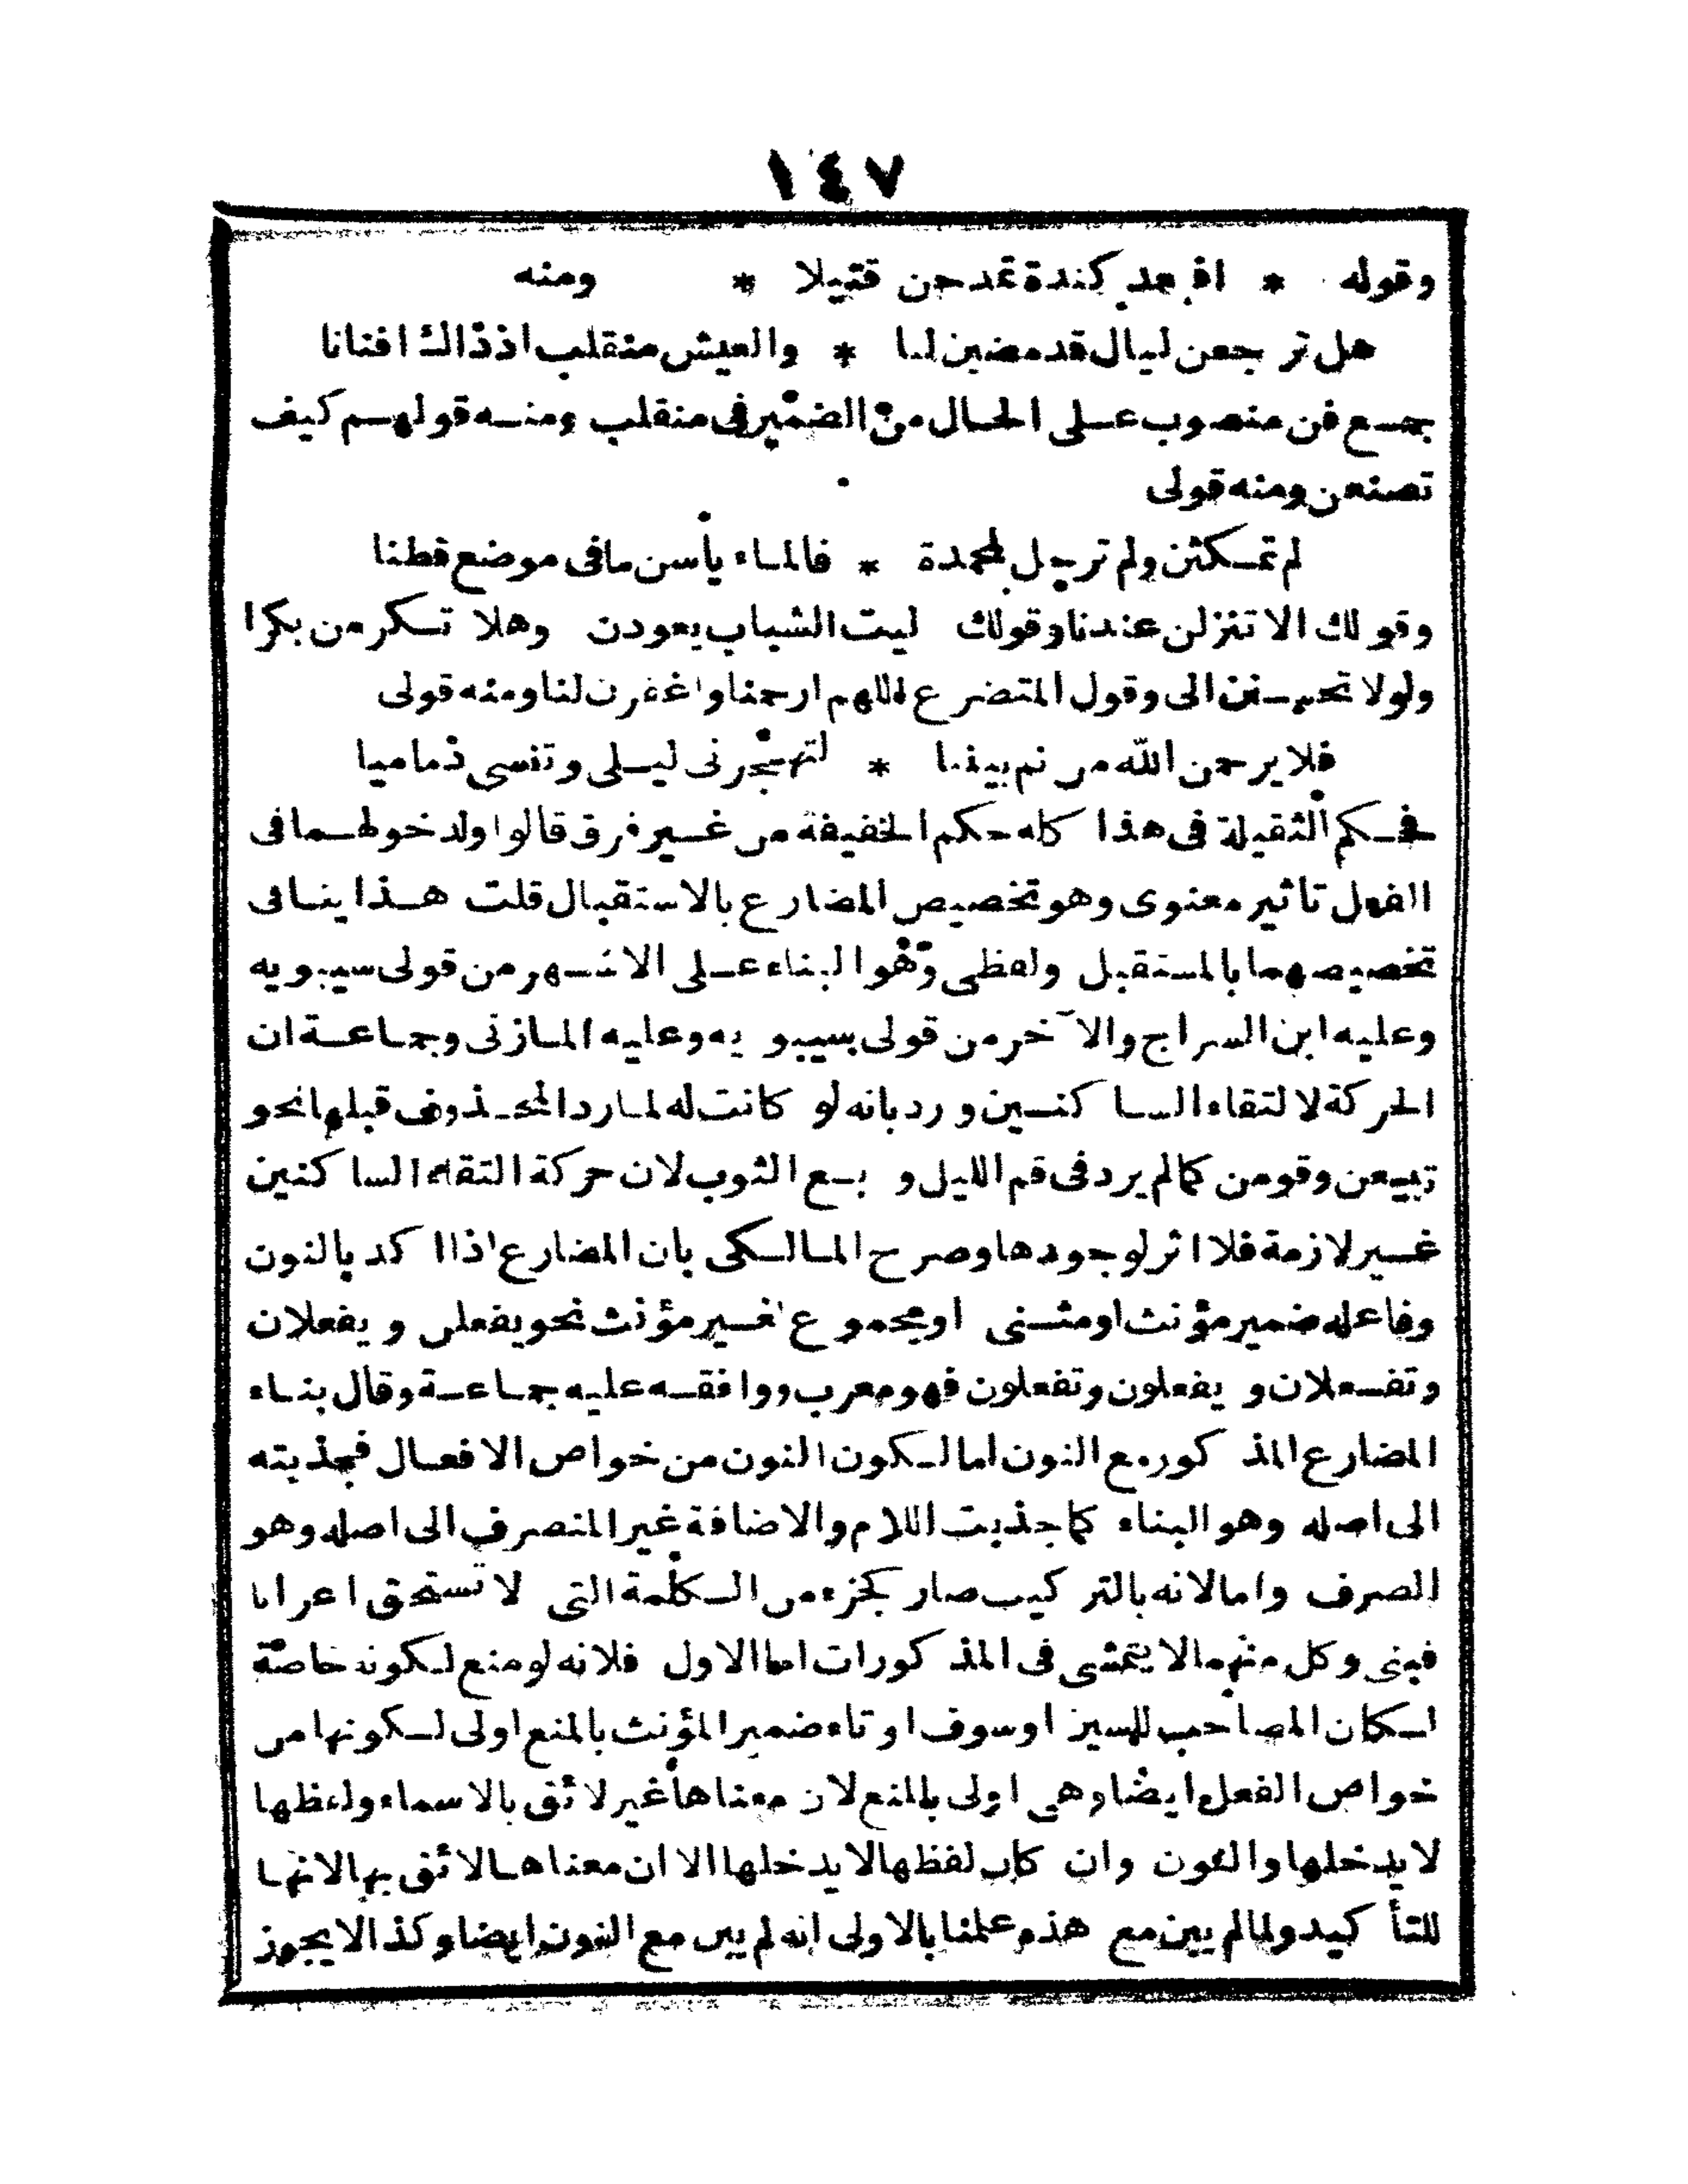 ١٤٧
وقوله * افبعد كندة تمدحن قتيلا * ومنه
هل ترجعن ليال قد مضين لنا * والعيش منقلب اذ ذاك افنانا
جمع فن منصوب على الحال من الضمير فى منقلب ومنه قولهم كيف
تصنعن ومنه قولى
لم تمكثن ولم ترحل لمحمدة * فالماء يأسن ما فى موضع قطنا
وقولك الا تنزلن عندنا وقولك ليت الشباب يعودن وهلا تكرمن بكرا
ولولا تحسنن الى وقول المتضرع اللهم ارحمنا واغفرن لنا ومنه قولى
فلا يرحمن الله من نم بيننا * لتهجرنى ليلى وتنسى ذماميا
فحكم الثقيلة فى هذا كله حكم الخفيفة من غير فرق قالوا ولدخولهما فى
الفعل تاثير معنوى وهو تخصيص المضارع بالاستقبال قلت هذا ينافى
تخصيصهما بالمستقبل ولفظى وهو البناء على الاشهر من قولى سيبويه
وعليه ابن السراج والآخر من قولى سيبويه وعليه المازنى وجماعة ان
الحركة لالتقاء الساكنين ورد بانه لو كانت له لما رد المحذوف قبلها نحو
تبيعن وقومن كما لم يرد فى قم الليل وبع الثوب لان حركة التقاء الساكنين
غير لازمة فلا اثر لوجودها وصرح المالكى بان المضارع اذا اكد بالنون
وفاعله ضمير مؤنث او مثنى او مجموع غير مؤنث نحو يفعلن ويفعلان
وتفعلان ويفعلون وتفعلون فهو معرب ووافقه عليه جماعة وقال بناء
المضارع المذكور مع النون اما لكون النون من خواص الافعال فجذبته
الى اصله وهو البناء كما جذبت اللام والاضافة غير المنصرف الى اصله وهو
الصرف واما لانه بالتركيب صار كجزء من الكلمة التى لا تستحق اعرابا
فبنى وكل منهما لا يتمشى فى المذكورات اما الاول فلانه لو منع لكونه خاصة
لكان المصاحب للسين او سوف او تاء ضمير المؤنث بالمنع اولى لكونها من
خواص الفعل ايضا وهى اولى بالمنع لان معناها غير لائق بالاسماء ولفظها
لا يدخلها والنون وان كان لفظها لا يدخلها الا ان معناها لائق بها لانها
للتأكيد ولما لم يبن مع هذه علمنا بالاولى انه لم يبن مع النون ايضا وكذا لا يجوز